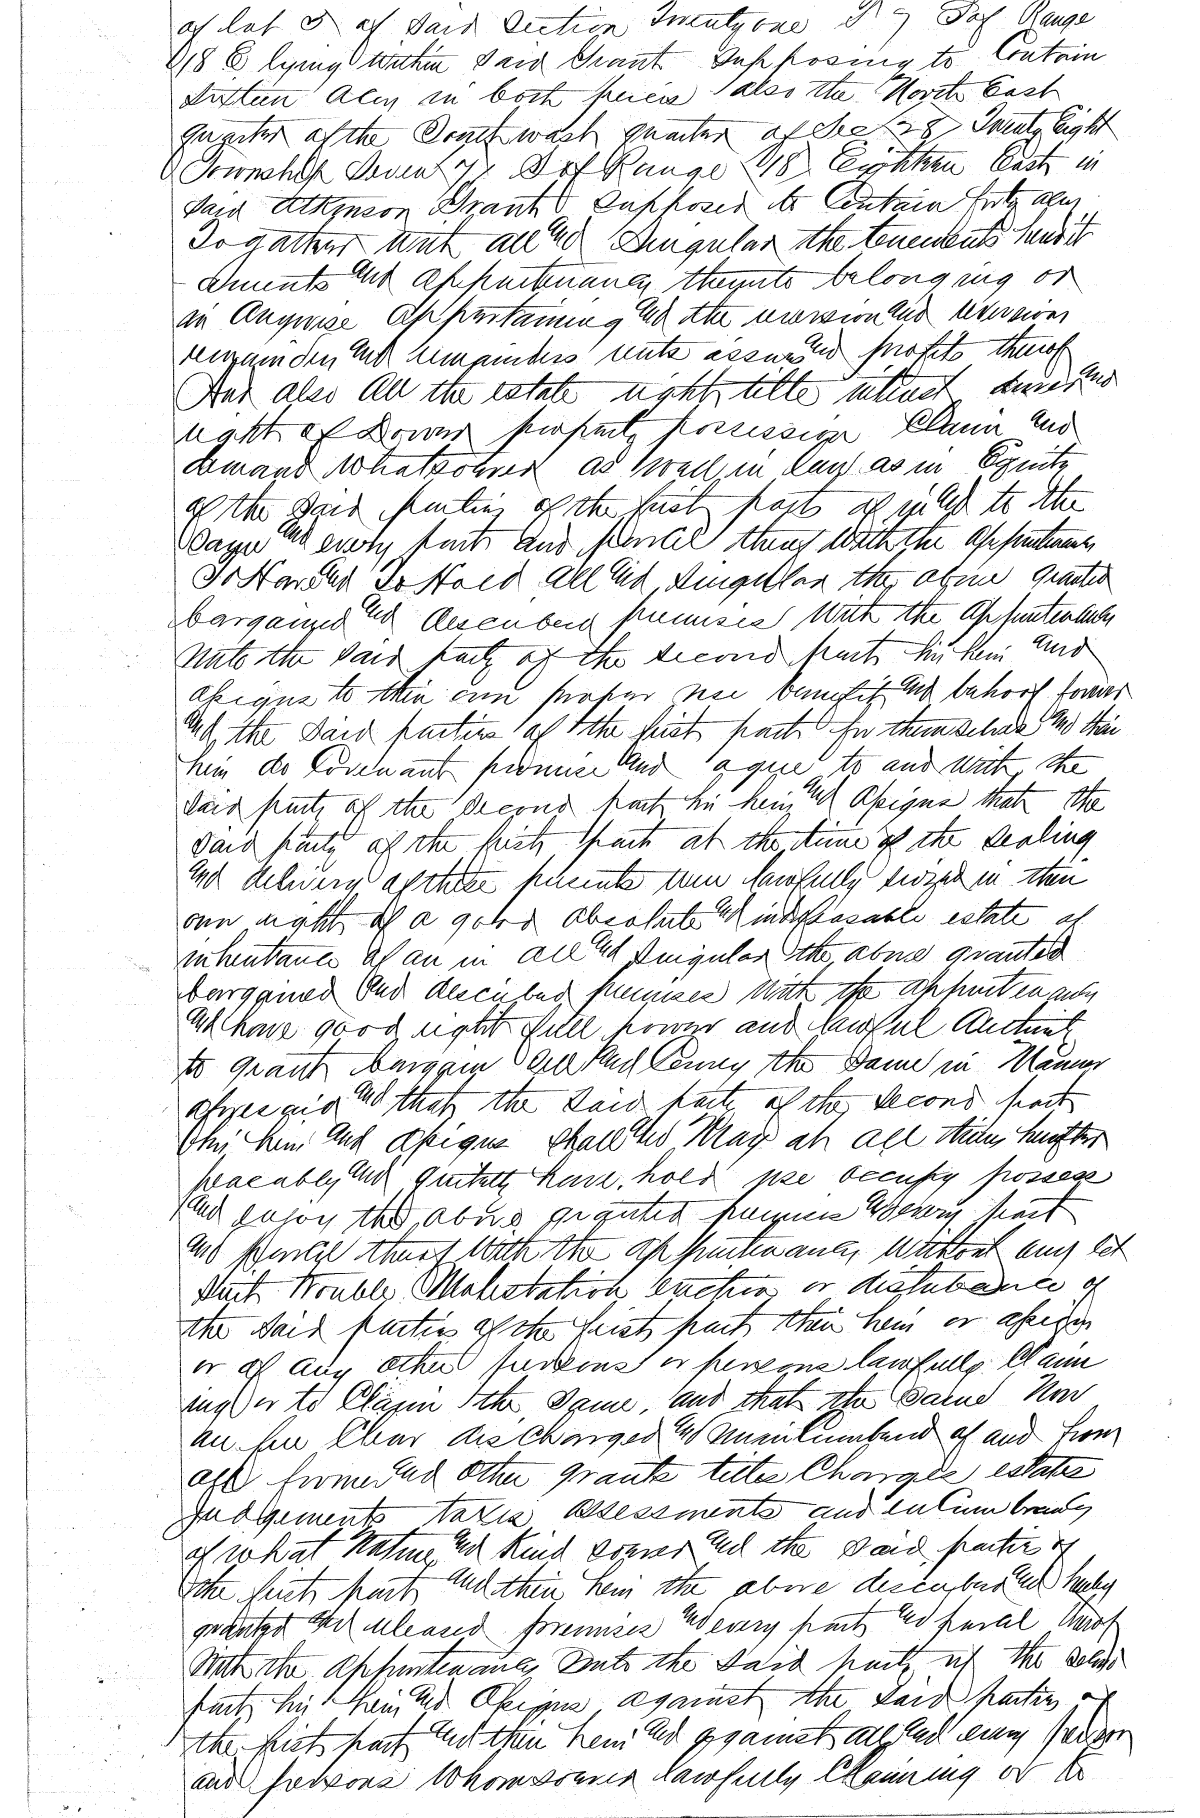 of lot 3 of said Section Twenty one T 7 S of Range
18 E lying within said Grant supposing to Contain
sixteen acres in both peices also the North East
quarter of the South west quarter of Sec 28 Twenty Eight
Township Seven 7 S of Range 18 Eighteen East in
said Atkinson Grant supposed to Contain forty acres
To gather with all and Singular the tenements heredit
aments and appurtenances thereunto belonging or
in Anywise appertaining and the reversion and reversions
remainder and remainders rents issues and profits therof
And also All the estate right, title intrust dower and
right of Dower property possession Claim and
demand whatsoever as well in law as in Equity
of the said parties of the first part of in and to the
Same and every part and parcel therof with the appurtenances
To Have and To Hold all and Singular the above granted
bargained and described premises with the appurtenances
Unto the said party of the second part, his heirs and
assigns to their own proper use benefit and behoof forever
and the said parties of the first part for themselves and their
heirs do Covenant promise and agree to and with the
said party of the second part his heirs and assigns that the
said party of the first part at the time of the sealing
and delivery of these presents were lawfully seized in their
own right of a good absolute and indefeasable estate of
inheritance of an in all and Singular the above granted
bargained and described premises with the appurtenances
and have good right full power and lawful Authority
to grant bargain sell and Convey the same in Manner
aforesaid and that the said party of the second part
his heirs and assigns shall and May at all times hereafter
peaceably and quietly have, hold use occupy possess
and enjoy the above granted premises and every part
and parcel thereof with the appurtenances without any let
suit trouble Molestation eviction or disturbance of
the said parties of the first part their heirs or assigns
or of any other persons or persons lawfully Claim
ing or to Claim the same, and that the same Now
are free Clear discharged and unincumbered of and from
all former and other grants titles Charges estates
Judgements taxes assessments and encumbrances
of what Nature and Kind soever and the said parties of
the first part and their heirs the above described and hereby
granted and released premises and every part and parcel thereof
With the appurtenances Unto the said party of the second
part his heirs and assigns against the said parties of
the first part and their heirs and against all and every person
and persons whomsoever lawfully Claiming or to